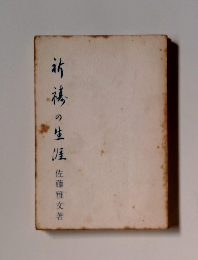 祈祷の生涯
佐藤雅文著